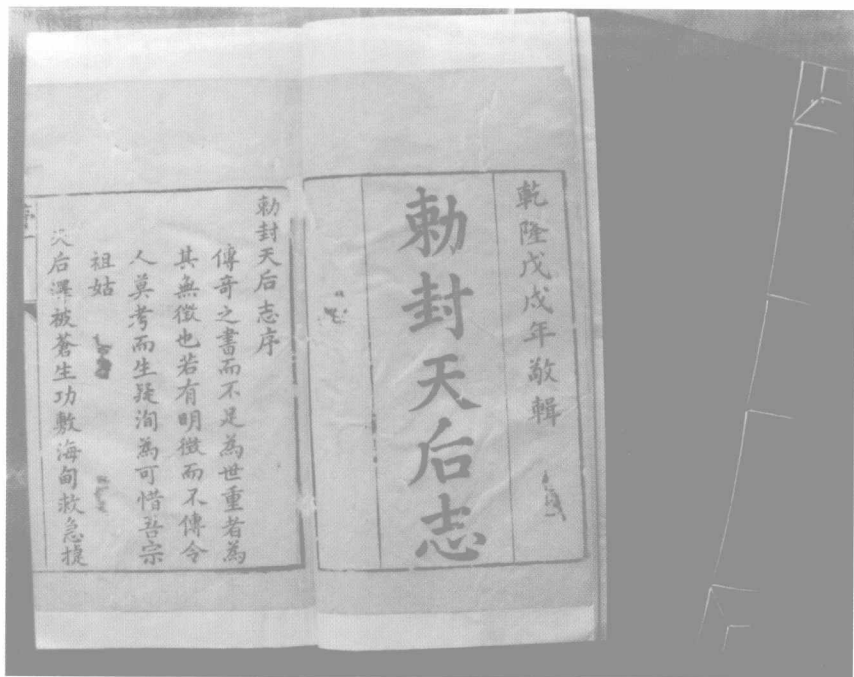 乾隆戊戌年敬輯
勅封天后志
勅封天后志序
傳奇之書而不足為世重者為
其無徵也若有明徵而不傳令
人莫考而生疑洵為可惜吾宗
祖姑
天后澤被蒼生功敷海甸救急捷
序